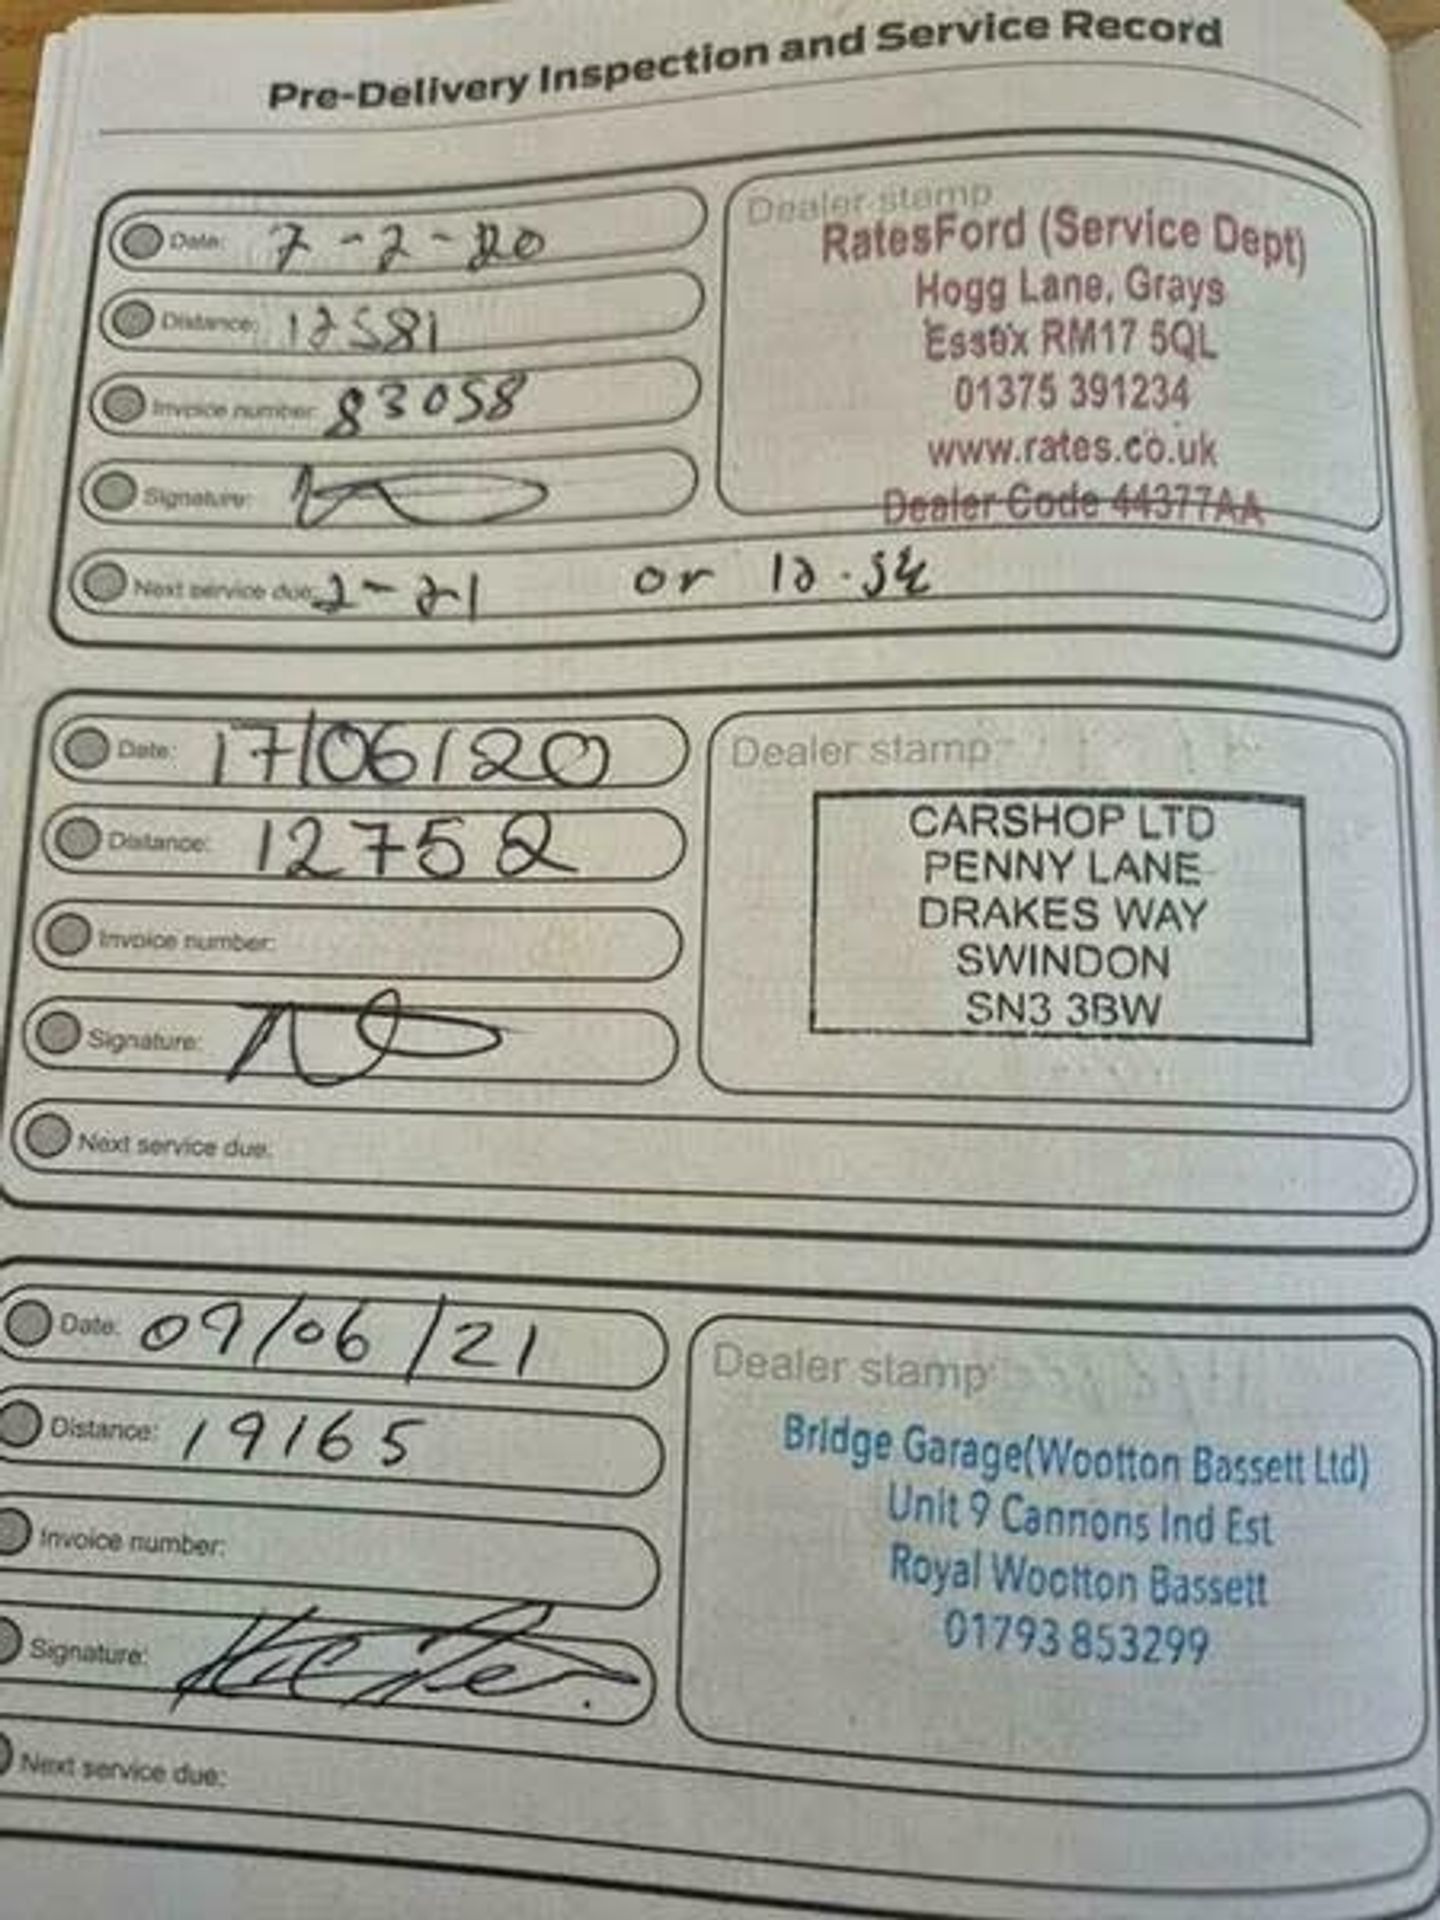 Pre-Delivery Inspection and Service Record
Date: 7-2-20
Distance: 12581
Invoice number: 83058
Signature:
Next service due: 2-21 or 12.5k
Dealer stamp
RatesFord (Service Dept)
Hogg Lane, Grays
Essex RM17 5QL
01375 391234
www.rates.co.uk
Dealer Code 44377AA
Date: 17/06/20
Distance: 12752
Invoice number:
Signature:
Next service due:
Dealer stamp:
CARSHOP LTD
PENNY LANE
DRAKES WAY
SWINDON
SN3 3BW
Date: 09/06/21
Distance: 19165
Invoice number:
Signature:
Next service due:
Dealer stamp:
Bridge Garage(Wootton Bassett Ltd)
Unit 9 Cannons Ind Est
Royal Wootton Bassett
01793 853299